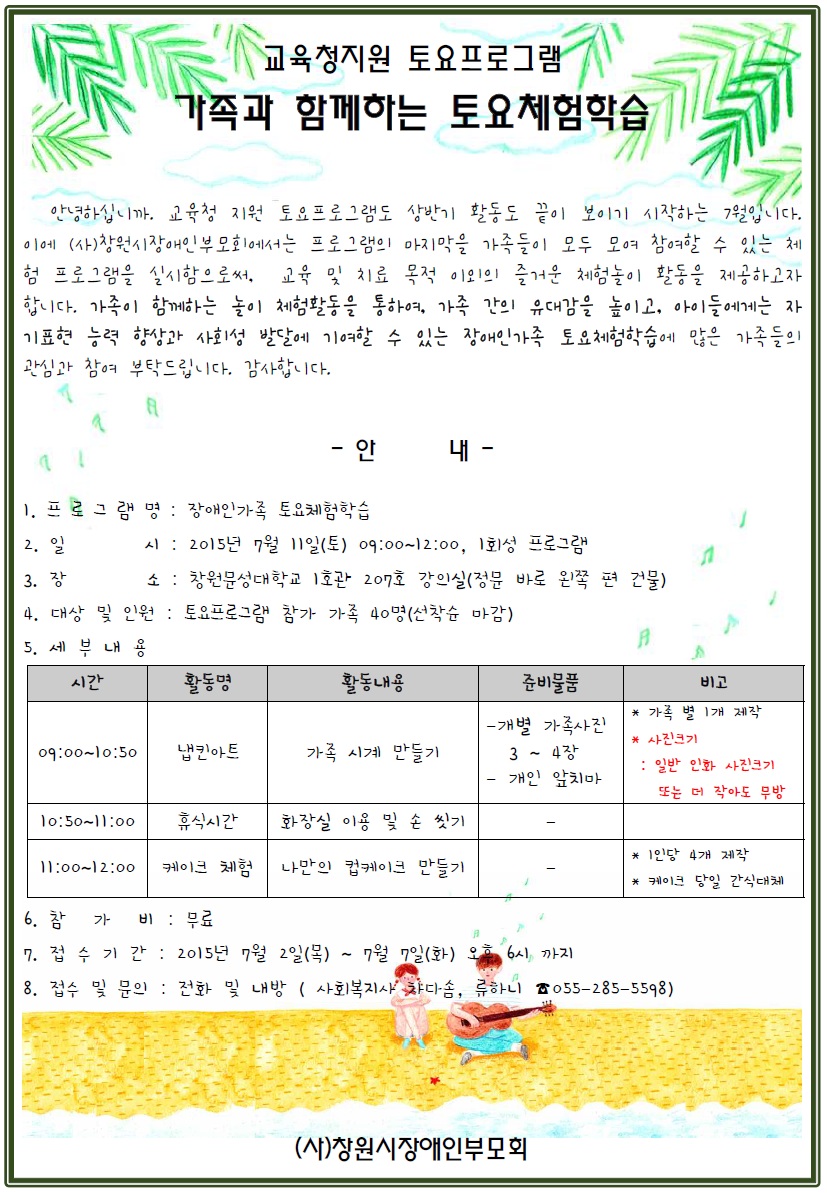 교육청지원 토요프로그램
가족과 함께하는 토요체험학습
안녕하십니까. 교육청 지원 토요프로그램도 상반기 활동도 끝이 보이기 시작하는 7월입니다.
이에 (사)창원시장애인부모회에서는 프로그램의 마지막을 가족들이 모두 모여 참여할 수 있는 체
험 프로그램을 실시함으로써, 교육 및 치료 목적 이외의 즐거운 체험놀이 활동을 제공하고자
합니다. 가족이 함께하는 놀이 체험활동을 통하여, 가족 간의 유대감을 높이고, 아이들에게는 자
기표현 능력 향상과 사회성 발달에 기여할 수 있는 장애인가족 토요체험학습에 많은 가족들의
관심과 참여 부탁드립니다. 감사합니다.
- 안 내 -
1. 프 로 그 램 명 : 장애인가족 토요체험학습
2. 일 시 : 2015년 7월 11일(토) 09:00~12:00, 1회성 프로그램
3. 장 소 : 창원문성대학교 1호관 207호 강의실(정문 바로 왼쪽 편 건물)
4. 대상 및 인원 : 토요프로그램 참가 가족 40명(선착순 마감)
5. 세 부 내 용
시간 활동명 활동내용 준비물품 비고
09:00~10:50 냅킨아트 가족 시계 만들기
-개별 가족사진
3 ~ 4장
- 개인 앞치마
* 가족 별 1개 제작
* 사진크기
: 일반 인화 사진크기
또는 더 작아도 무방
10:50~11:00 휴식시간 화장실 이용 및 손 씻기 -
11:00~12:00 케이크 체험 나만의 컵케이크 만들기 -
* 1인당 4개 제작
* 케이크 당일 간식대체
6. 참 가 비 : 무료
7. 접 수 기 간 : 2015년 7월 2일(목) ~ 7월 7일(화) 오후 6시 까지
8. 접수 및 문의 : 전화 및 내방 ( 사회복지사 차다솜, 류하니 ☎055-285-5598)
(사)창원시장애인부모회